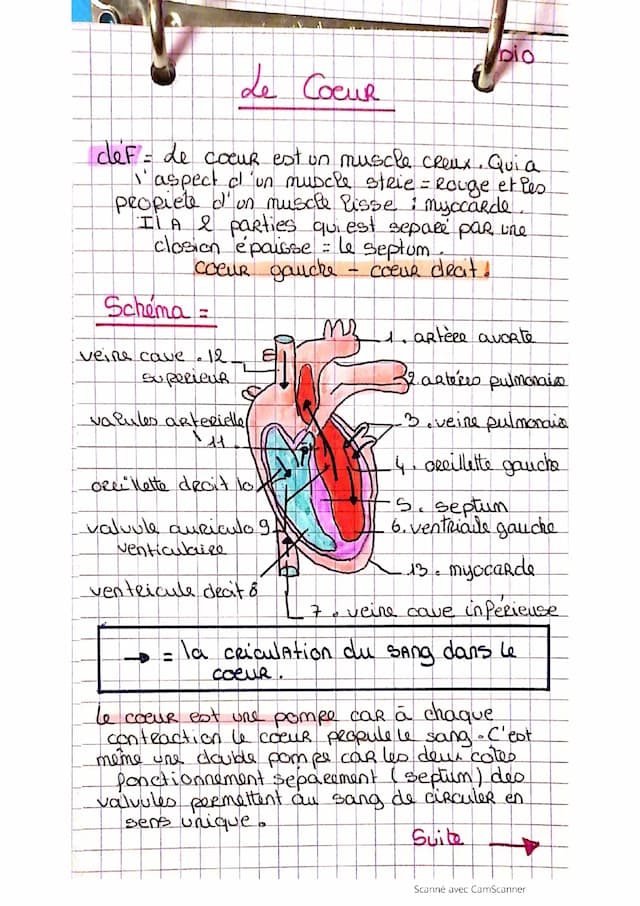 bio
Le Coeur
déf = Le coeur est un muscle creux. Qui a
l'aspect d'un muscle strie = rouge et les
propiete d'un muscle lisse : myocarde.
Il A 2 parties qui est separé par une
closion épaisse = le septum.
coeur gauche - coeur droit.
Schéma =
1. artère avorte
veine cave . 12
superieur
2. artério pulmonaire
valvules arterielle
11
3. veine pulmonaire
4. oreillette gauche
oreillette droit 10
5. septum
valvule auriculo 9
venticulaire
6. ventricule gauche
13. myocarde
ventricule droit 8
7. veine cave inférieuse
→ = la criculation du sang dans le
coeur.
Le coeur est une pompe car à chaque
contraction le coeur propulele sang. C'est
même une double pompe car les deux cotes
fonctionnement séparement (septum) des
valvules permettent au sang de circuler en
sens unique.
Suite →
Scanné avec CamScanner